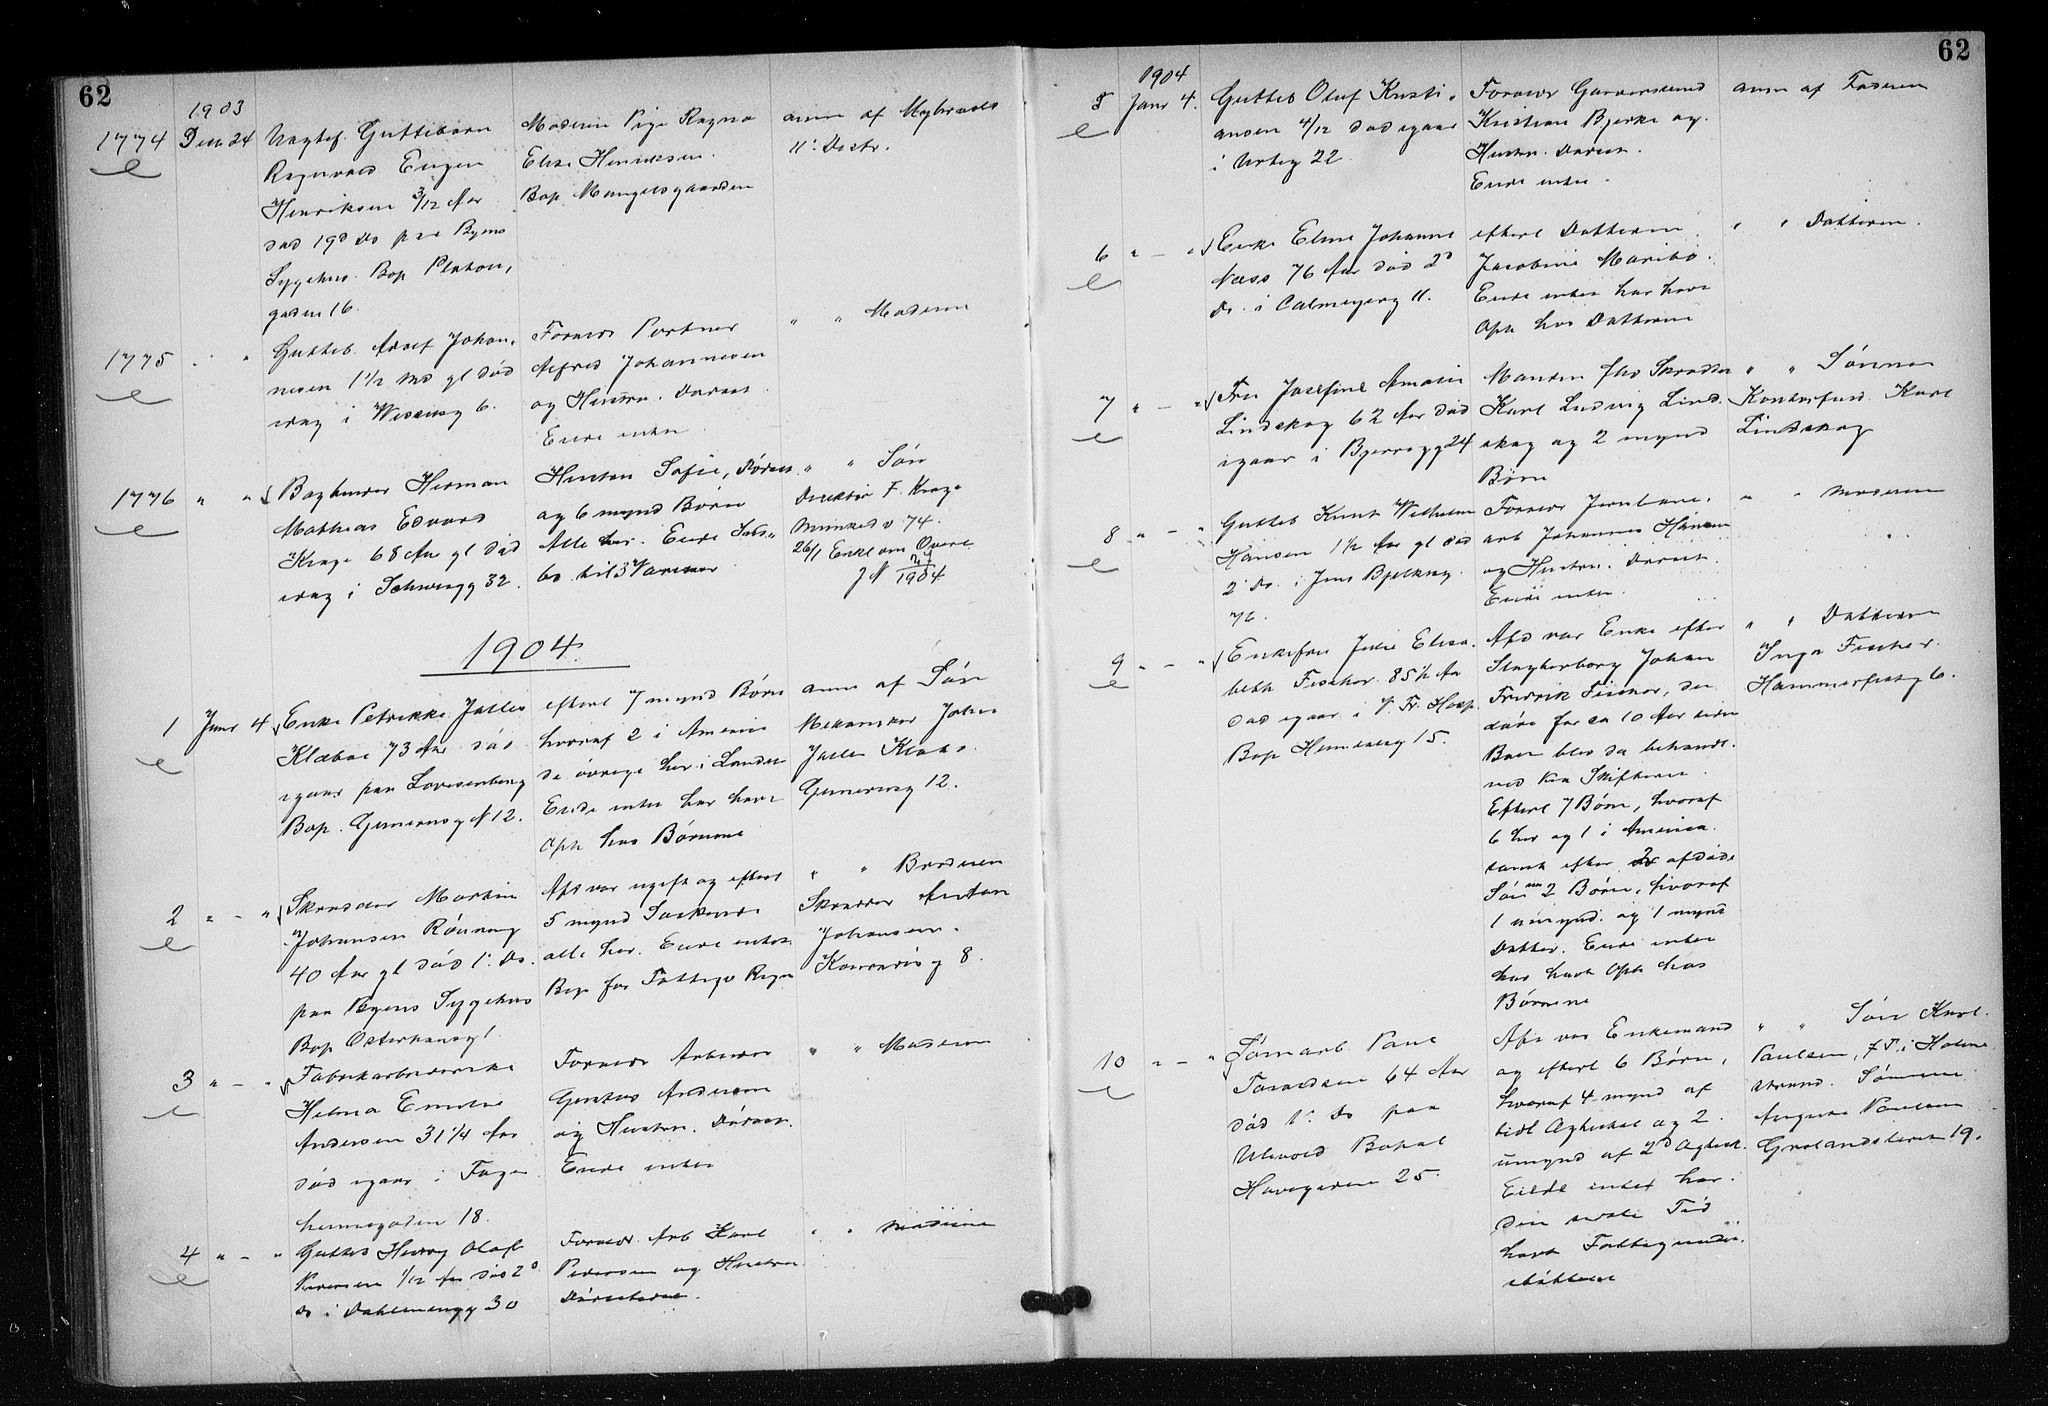 62
1903
1774 Decbr 24 Uægtef. Guttebarn
Ragnvald Eugen
Henriksen 3/12 Aar
død 19d Ds paa Byens
Sygehus. Bop Platou,
gaden 16.
Moderen Pige Ragna
Elise Henriksen.
Bop Mangelsgaarden
anm af
11' Distr.
1775 " "
Gutteb. Adolf Johan,
nesen 1 1/2 Md gl død
idag i Wessensg 6.
Forældr Portner
Alfred Johannesen
og Hustru. Darset
Eiede intet
" " Moderen
1776 " "
Bogbinder Herman
Mathias Edvard
Krage 68 Aar gl død
idag i Schweigg 32.
Hustru Sofie,
og 6 mynd Børn
Alle her. Eiede
bo til 3 Varer
" " Søn
Direktør F. Krage
Munked v 74.
26/1 Enkl om
J N 1904
1904
1 Janr 4
Enke Petrikke Jæller
Klæboe 73 Aar død
igaar paa Lovisenberg
Bop. N 12.
efterl 7 mynd Børn
hvoraf 2 i Amerika
de øvrige her i Landet
Eiede intet har havt
Oph hos Børnene
anm af Søn
Mekanker John
12.
2 " - "
Skrædder Martin
Johansen Rønning
40 Aar gl død 1' Ds.
paa Byens Sygehus
Bop Østerhausg 1
Afd var ugift og efterl
5 mynd Søskende
alle her. Eiede intet.
Beg for Fattigv Regn
" " Broderen
Skrædder Anton
Johansen.
8.
3 " - "
Fabrikarbeiderske
Helma Emilie
Andersen 31 1/4 Aar
død igaar i Tøge
18.
Forældr Arbeider
Gustav Andersen
og Hustru.
Eiede intet
" " Moderen
4 " - "
Gutteb Henry Olaf
Pedersen 1/12 Aar død 2d
Ds i Dahlenengg 30
Forældr. Arb Karl
Pedersen og Hustru
" " Moderen
62
1904
5 Janr 4.
Gutteb Oluf Kristi,
ansen 4/12 død igaar
i Urteg 22.
Forældr Garversvend
Kristian Bjerke og
Hustru. Darset.
Eiede intet.
anm af Faderen
6 " - "
Enke Eline Johanne
Næss 76 Aar død 2d
Ds. i Calmeyerg 11.
efterl Datteren
Jacobine Maribo.
Eiede intet har havt
Oph hos Datteren
" " Datteren.
7 " - "
Fru Josefine Amalie
Lindskog 62 Aar død
igaar i Bjerregg 24
Manden fhv Skrædder
Karl Ludvig Lind.
skog og 2 mynd
Børn
" " Sønnen
Kontorfuld. Karl
Lindskog
8 " - "
Gutteb Knut Wilhelm
Hansen 1 1/2 Aar gl død
2' Ds. i Jens Bjelkesg
76.
Forældr Jernbane.
arb Johannes Hansen
og Hustru. Darset.
Eiede intet.
" " Moderen
9 " - "
Enkefru Julie Elisa.
beth Fischer 85 1/2 Aar
død igaar i V. Fr. Hosp.
Bop 15.
Afd var Enke efter
Johan
Fredrik Fischer, der
døde for ca 10 Aar siden
Boet blev da behandl.
ved Kra Skifteret.
Efterl 7 Børn, hvoraf
6 her og 1 i Amerika.
samt efter afdøde
Søn 2 Børn, hvoraf
1 umynd. og 1 mynd
Datter. Eiede intet
har havt Oph hos
Børnene
" " Datteren
Inga Fischer.
Hammerfestg 6.
10 " - "
Tømarb. Paul
64 Aar
død 1' Ds paa
Ullevold Bopal
Havegaden 25.
Afd var Enkemand
og efterl 6 Børn,
hvoraf 4 mynd af
tidl Ægteskab og 2.
umynd af 2d Ægtesk.
Eiede intet har.
den sidste Tid
havt Fattigunder.
støttelse
" " Søn Karl.
Paulsen, i Holme
strand. Sønnen
August Paulsen
Grønlandsleret 19.